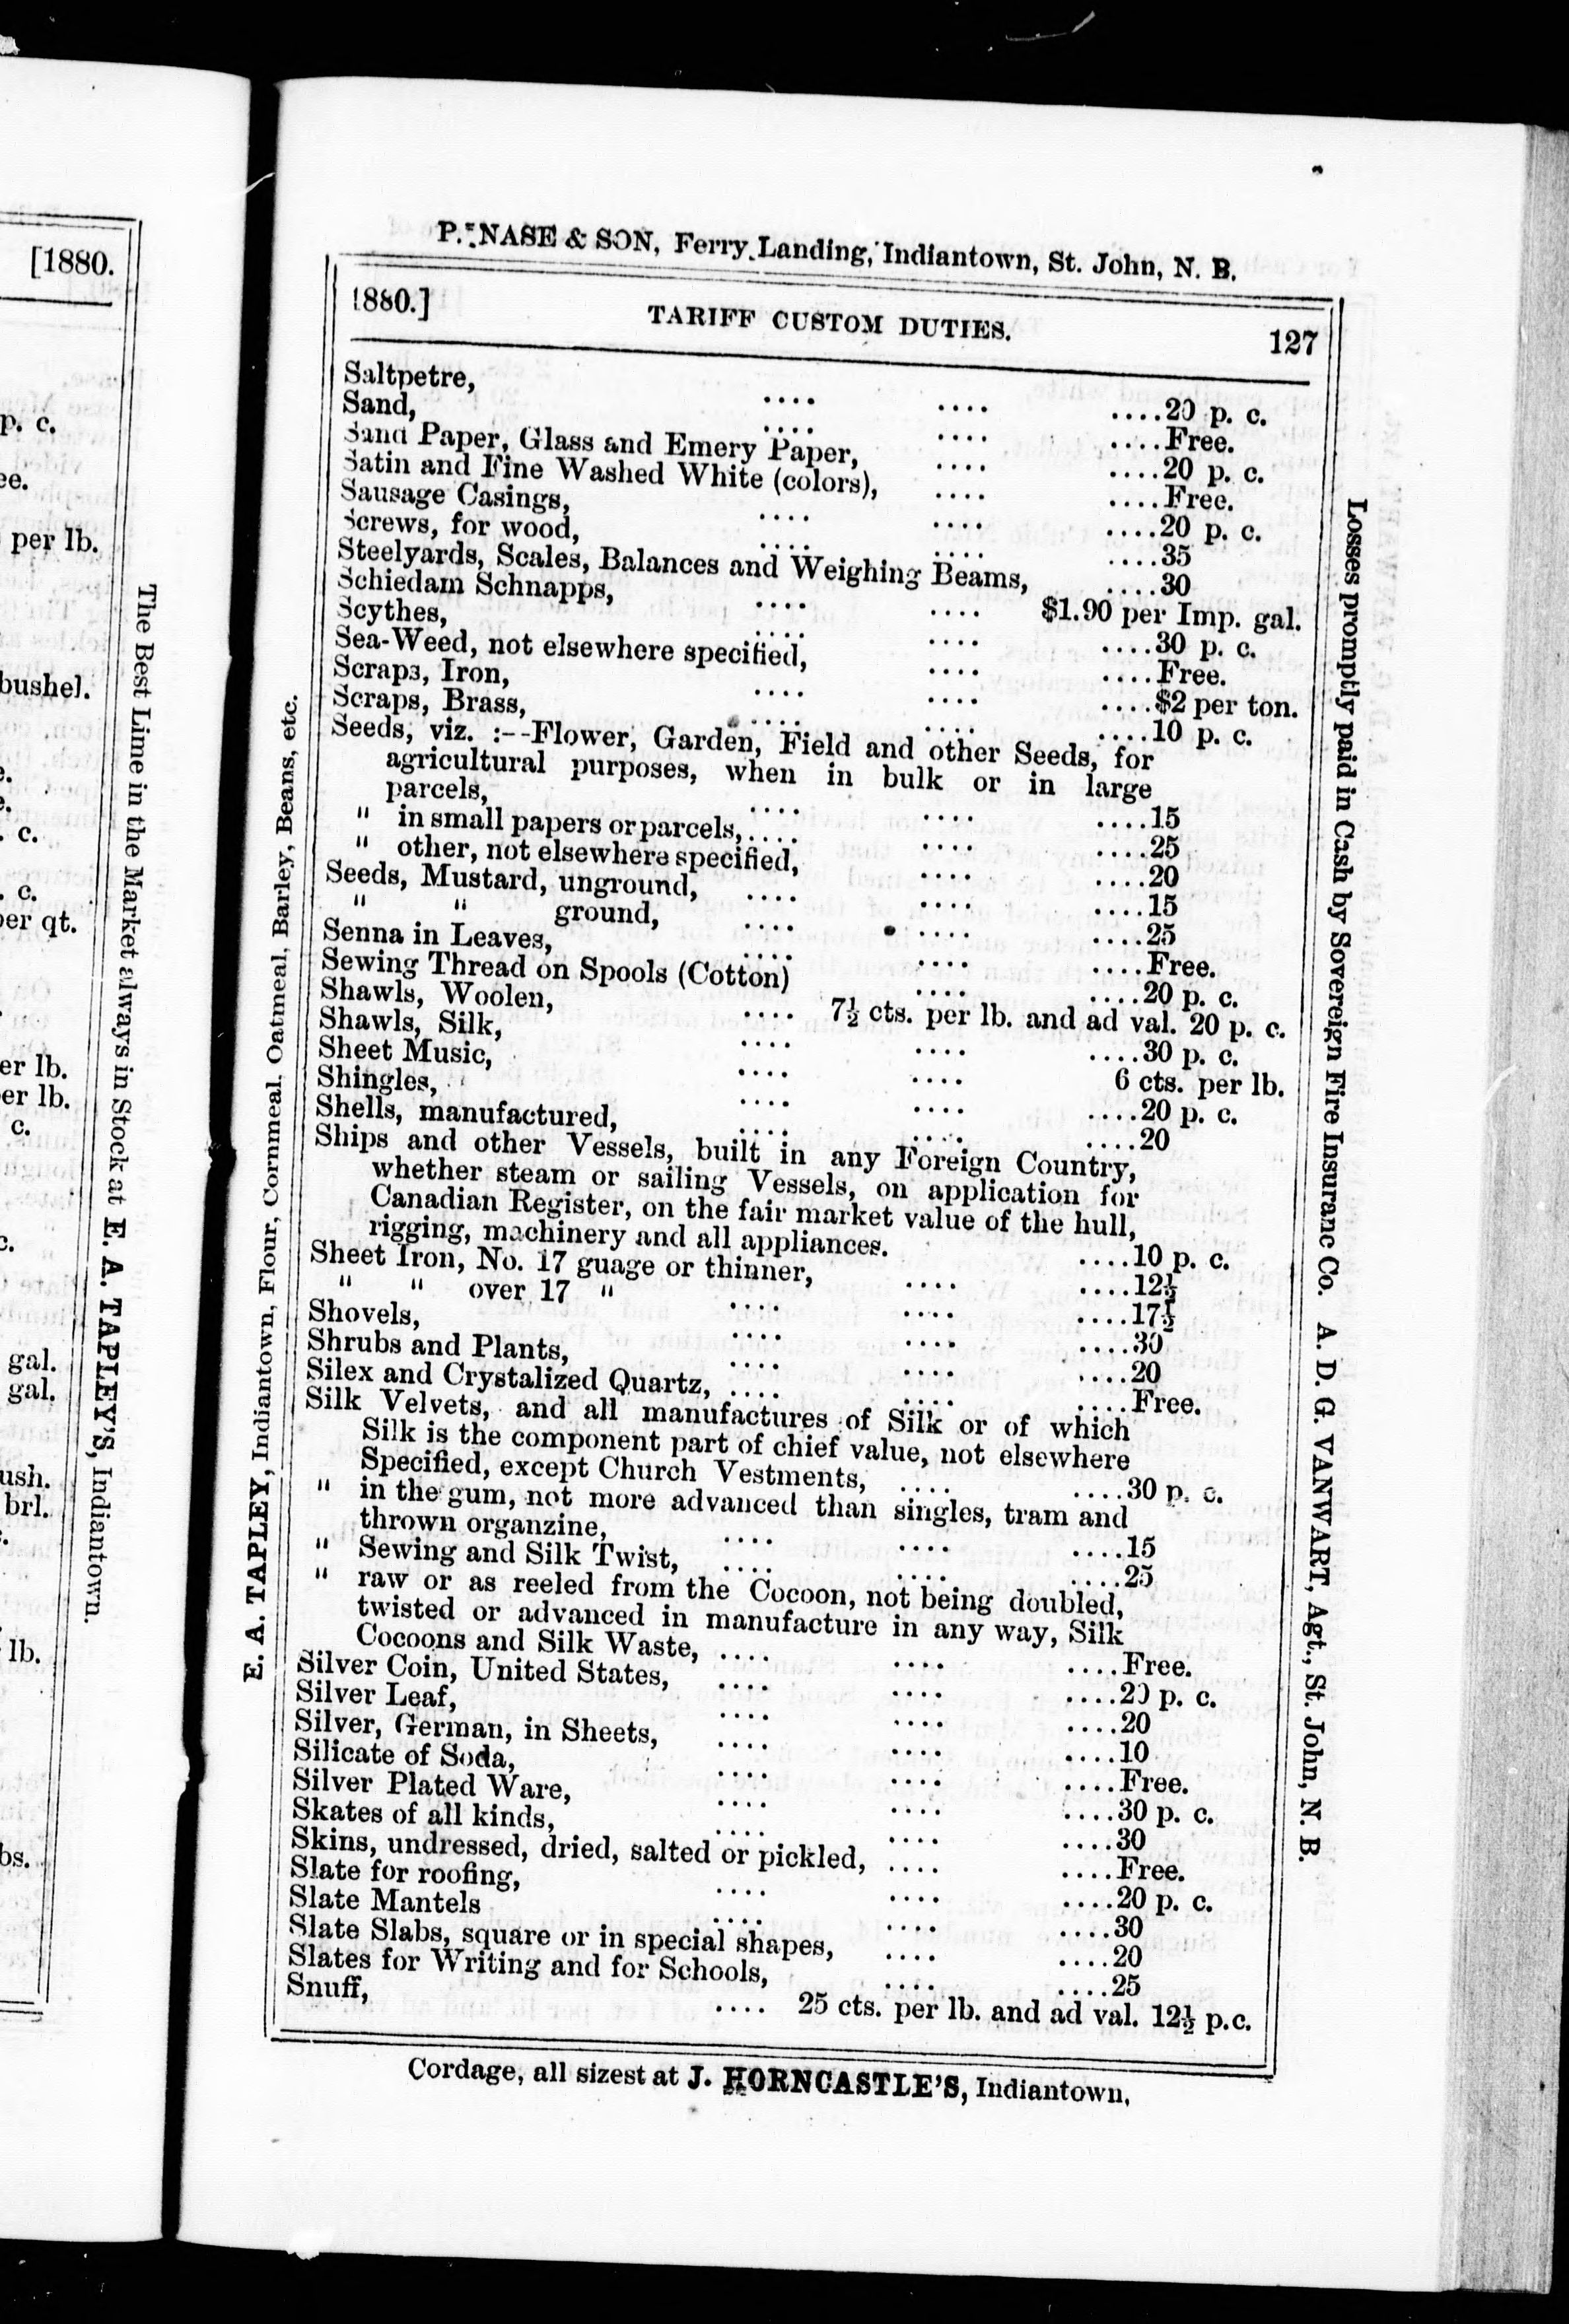 [1880.
p. c.
per lb.
bushel.
c.
c.
per qt.
er lb.
er lb.
c.
gal.
gal.
ush.
brl.
lb.
The Best Lime in the Market always in Stock at E. A. TAPLEY'S, Indiantown.
E. A. TAPLEY, Indiantown, Flour, Cornmeal, Oatmeal, Barley, Beans, etc.
P. NASE & SON, Ferry Landing, Indiantown, St. John, N. B.
1880.] TARIFF CUSTOM DUTIES. 127
Saltpetre, .... .... ....20 p. c.
Sand, .... .... ....Free.
Sand Paper, Glass and Emery Paper, .... ....20 p. c.
Satin and Fine Washed White (colors), .... ....Free.
Sausage Casings, .... .... ....20 p. c.
Screws, for wood, .... .... ....35
Steelyards, Scales, Balances and Weighing Beams, ....30
Schiedam Schnapps, .... .... $1.90 per Imp. gal.
Scythes, .... .... ....30 p. c.
Sea-Weed, not elsewhere specified, .... ....Free.
Scraps, Iron, .... .... ....$2 per ton.
Scraps, Brass, .... .... ....10 p. c.
Seeds, viz. :--Flower, Garden, Field and other Seeds, for
agricultural purposes, when in bulk or in large
parcels, .... .... ....15
" in small papers or parcels,.... .... ....25
" other, not elsewhere specified, .... ....20
Seeds, Mustard, unground, .... .... ....15
" " ground, .... .... ....25
Senna in Leaves, .... .... ....Free.
Sewing Thread on Spools (Cotton) .... ....20 p. c.
Shawls, Woolen, .... 7½ cts. per lb. and ad val. 20 p. c.
Shawls, Silk, .... .... ....30 p. c.
Sheet Music, .... .... 6 cts. per lb.
Shingles, .... .... ....20 p. c.
Shells, manufactured, .... .... ....20
Ships and other Vessels, built in any Foreign Country,
whether steam or sailing Vessels, on application for
Canadian Register, on the fair market value of the hull,
rigging, machinery and all appliances. ....10 p. c.
Sheet Iron, No. 17 guage or thinner, .... ....12½
" " over 17 " .... .... ....17½
Shovels, .... .... ....30
Shrubs and Plants, .... .... ....20
Silex and Crystalized Quartz, .... .... ....Free.
Silk Velvets, and all manufactures of Silk or of which
Silk is the component part of chief value, not elsewhere
Specified, except Church Vestments, .... ....30 p. c.
" in the gum, not more advanced than singles, tram and
thrown organzine, .... .... ....15
" Sewing and Silk Twist, .... .... ....25
" raw or as reeled from the Cocoon, not being doubled,
twisted or advanced in manufacture in any way, Silk
Cocoons and Silk Waste, .... .... ....Free.
Silver Coin, United States, .... .... ....20 p. c.
Silver Leaf, .... .... ....20
Silver, German, in Sheets, .... .... ....10
Silicate of Soda, .... .... ....Free.
Silver Plated Ware, .... .... ....30 p. c.
Skates of all kinds, .... .... ....30
Skins, undressed, dried, salted or pickled, .... ....Free.
Slate for roofing, .... .... ....20 p. c.
Slate Mantels .... .... ....30
Slate Slabs, square or in special shapes, .... ....20
Slates for Writing and for Schools, .... ....25
Snuff, .... 25 cts. per lb. and ad val. 12½ p.c.
Cordage, all sizest at J. HORNCASTLE'S, Indiantown,
Losses promptly paid in Cash by Sovereign Fire Insuranc Co. A. D. G. VANWART, Agt., St. John, N. B.